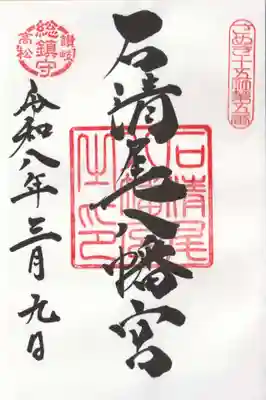 さぬき十五社第五番
石清尾八幡宮
石清尾八幡宮之印
讃岐
総鎮守
高松
令和八年三月九日